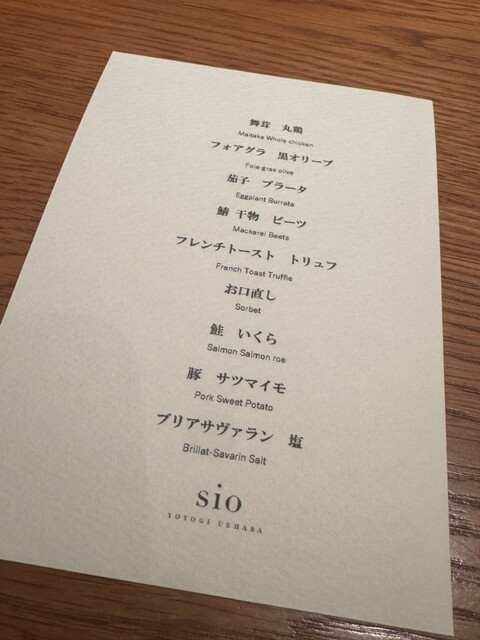 舞茸 丸鶏
Maitake Whole chicken
フォアグラ 黒オリーブ
Foie gras olive
茄子 ブラータ
Eggplant Burrata
鯖 干物 ビーツ
Mackerel Beets
フレンチトースト トリュフ
French Toast Truffle
お口直し
Sorbet
鮭 いくら
Salmon Salmon roe
豚 サツマイモ
Pork Sweet Potato
ブリアサヴァラン 塩
Brillat-Savarin Salt
sio
YOYOGI UEHARA